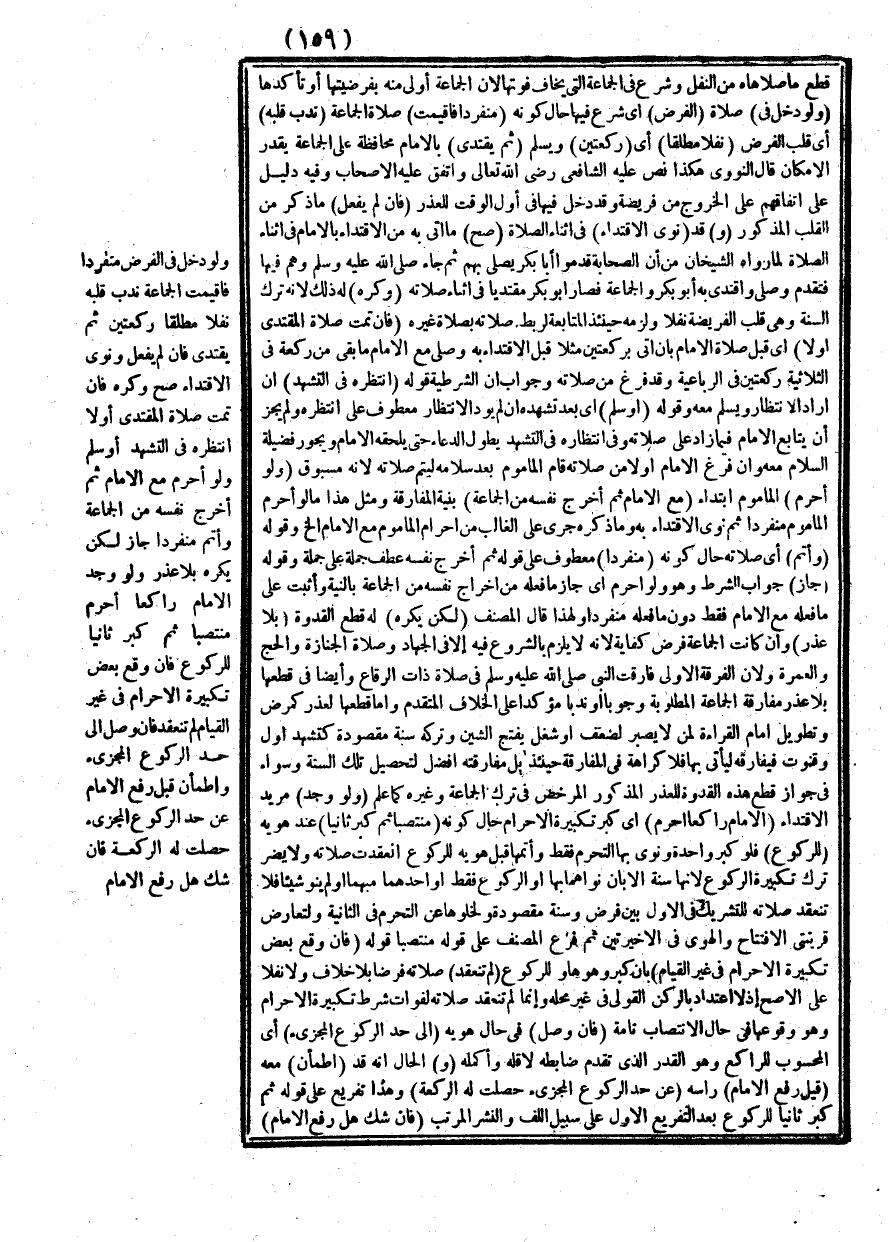 (١٥٩)
قطع ماصلاهاه من النفل وشرع فى الجماعة التى يخاف فوتهالان الجماعة أولى منه بفرضيتها أوتأكدها
(ولودخل فى) صلاة (الفرض) اى شرع فيها حال كونه (منفردا فاقيمت) صلاة الجماعة (ندب قلبه)
أى قلب الفرض (نفلا مطلقا) أى (ركعتين) ويسلم (ثم يقتدى) بالامام محافظة على الجماعة بقدر
الامكان قال النووى هكذا نص عليه الشافعى رضى الله تعالى واتفق عليه الاصحاب وفيه دليل
على اتفاقهم على الخروج من فريضة وقد دخل فيهافى أول الوقت للعذر (فان لم يفعل) ماذكر من
القلب المذكور (و) قد (نوى الاقتداء) فى اثناء الصلاة (صح) مااتى به من الاقتداء بالامام فى اثناء
الصلاة لمارواه الشيخان من أن الصحابة قدموا أبا بكر يصلى بهم ثم جاء صلى الله عليه وسلم وهم فيها
فتقدم وصلى واقتدى به أبوبكر والجماعة فصار ابوبكر مقتديا فى اثناء صلاته (وكره) له ذلك لانه ترك
السنة وهى قلب الفريضة نفلا ولزمه حينئذ المتابعة لربط صلاته بصلاة غيره (فان تمت صلاة المقتدى
اولا) اى قبل صلاة الامام بان اتى بركعتين مثلا قبل الاقتداء به وصلى مع الامام مابقى من ركعة فى
الثلاثية ركعتين فى الرباعية وقد فرغ من صلاته وجواب ان الشرطية قوله (انتظره فى التشهد) ان
اراد الانتظار ويسلم معه وقوله (اوسلم) اى بعد تشهده ان لم يود الانتظار معطوف على انتظره ولم يجز
أن يتابع الامام فيمازاد على صلاته وفى انتظاره فى التشهد يطول الدعاء حتى يلحقه الامام ويحور فضيلة
السلام معه وان فرغ الامام اولا من صلاته قام الماموم بعد سلامه ليتم صلاته لانه مسبوق (ولو
أحرم) الماموم ابتداء (مع الامام ثم أخرج نفسه من الجماعة) بنية المفارقة ومثل هذا مالو أحرم
الماموم منفردا ثم نوى الاقتداء به وماذكره جرى على الغالب من احرام الماموم مع الامام الخ وقوله
(وأتم) أى صلاته حال كونه (منفردا) معطوف على قوله ثم أخرج نفسه عطف جملة على جملة وقوله
(جاز) جواب الشرط وهو ولو احرم اى جاز مافعله من اخراج نفسه من الجماعة بالنية وأثبت على
مافعله مع الامام فقط دون مافعله منفردا ولهذا قال المصنف (لكن يكره) له قطع القدوة (بلا
عذر) وان كانت الجماعة فرض كفاية لانه لايلزم بالشروع فيه إلا فى الجهاد وصلاة الجنازة والحج
والعمرة ولان الفرقة الاولى فارقت النبى صلى الله عليه وسلم فى صلاة ذات الرقاع وأيضا فى قطعها
بلاعذر مفارقة الجماعة المطلوبة وجوبا أوندبا مؤكدا على الخلاف المتقدم واما قطعها لعذر كمرض
وتطويل امام القراءة لمن لايصبر لضعف اوشغل بفتح الشين وتركه سنة مقصودة كتشهد اول
وقنوت فيفارقه ليأتى بها فلا كراهة فى المفارقة حينئذ بل مفارقته افضل لتحصيل تلك السنة وسواء
فى جواز قطع هذه القدوة للعذر المذكور المرخض فى ترك الجماعة وغيره كما علم (ولو وجد) مريد
الاقتداء (الامام راكعا احرم) اى كبر تكبيرة الاحرام حال كونه (منتصبا ثم كبر ثانيا) عند هويه
(للركوع) فلو كبر واحدة ونوى بها التحرم فقط وأتمها قبل هويه للركوع انعقدت صلاته ولايضر
ترك تكبيرة الركوع لانها سنة الابان نواهما بها اوالركوع فقط او احدهما مبهما اولم ينو شيئا فلا
تنعقد صلاته للتشريك فى الاول بين فرض وسنة مقصودة ولخلوها عن التحرم فى الثانية ولتعارض
قرينتى الافتتاح والهوى فى الاخيرتين ثم فرع المصنف على قوله منتصبا قوله (فان وقع بعض
تكبيرة الاحرام فى غير القيام) بان كبر وهو هاو للركوع (لم تنعقد) صلاته فرضا بلاخلاف ولا نفلا
على الاصح إذلا اعتداد بالركن القولى فى غير محله وإنما لم تنعقد صلاته لفوات شرط تكبيرة الاحرام
وهو وقوعها فى حال الانتصاب تامة (فان وصل) فى حال هويه (الى حد الركوع المجزىء) أى
المحسوب للراكع وهو القدر الذى تقدم ضابطه لاقله وأكمله (و) الحال انه قد (اطمأن) معه
(قبل رفع الامام) راسه (عن حد الركوع المجزىء حصلت له الركعة) وهذا تفريع على قوله ثم
كبر ثانيا للركوع بعد التفريع الاول على سبيل اللف والنشر المرتب (فان شك هل رفع الامام)
ولو دخل فى الفرض منفردا
فاقيمت الجماعة ندب قلبه
نفلا مطلقا ركعتين ثم
يقتدى فان لم يفعل ونوى
الاقتداء صح وكره فان
تمت صلاة المقتدى أولا
انتظره فى التشهد أوسلم
ولو أحرم مع الامام ثم
أخرج نفسه من الجماعة
وأتم منفردا جاز لكن
يكره بلاعذر ولو وجد
الامام راكعا أحرم
منتصبا ثم كبر ثانيا
للركوع فان وقع بعض
تكبيرة الاحرام فى غير
القيام لم تنعقد فان وصل الى
حد الركوع المجزىء
واطمأن قبل رفع الامام
عن حد الركوع المجزىء
حصلت له الركعة فان
شك هل رفع الامام